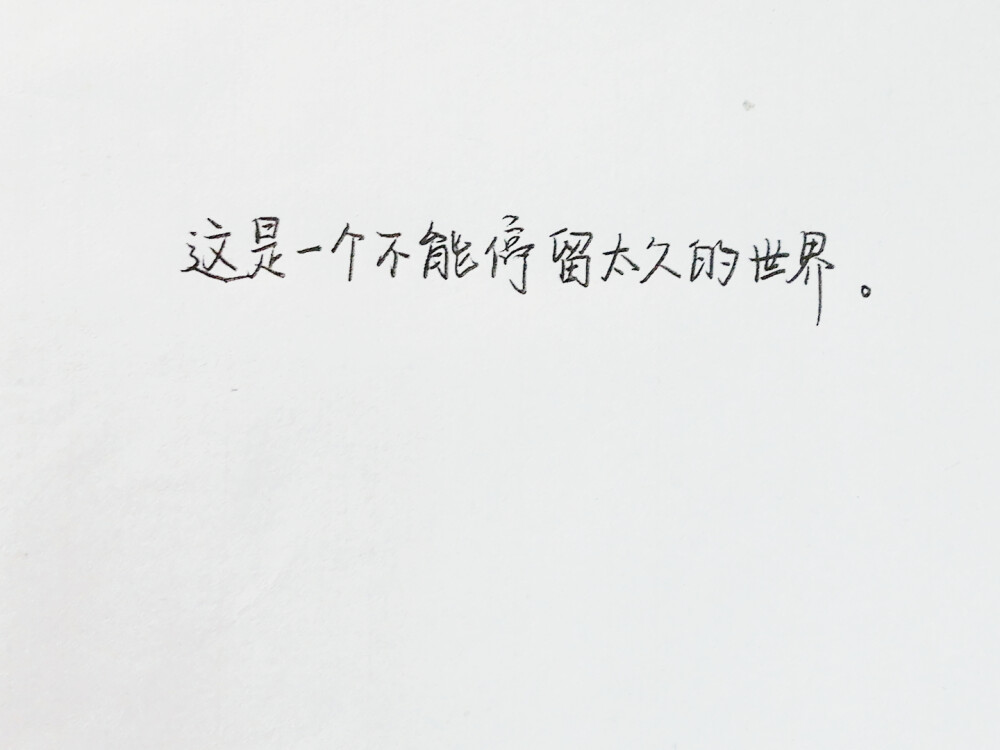 这是一个不能停留太久的世界。